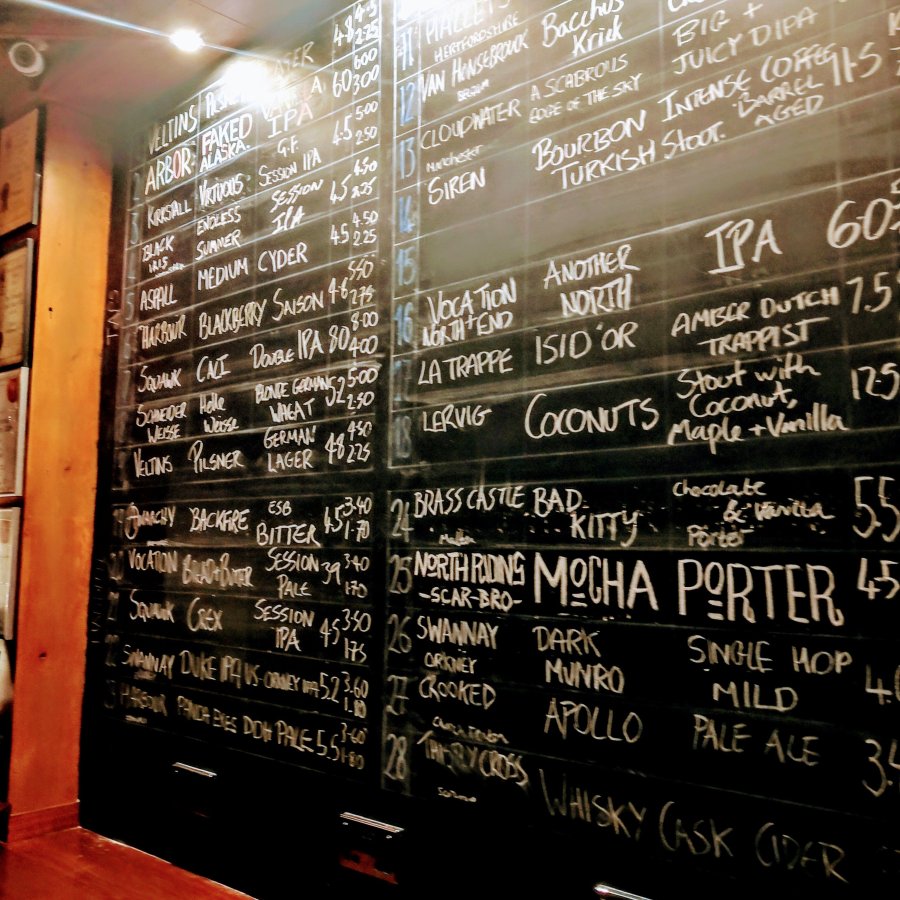 VELTINS
4.8
2.25
ARBOR FAKED ALASKA. IPA 6.0 6.00 3.00
KIRKSTALL VIRTUOUS G.F. SESSION IPA 4.5 5.00 2.50
BLACK IRIS ENDLESS SUMMER SESSION IPA 4.5 4.50 2.25
ASPALL MEDIUM CYDER 4.5 4.50 2.25
HARBOUR BLACKBERRY SAISON 4.8 5.50 2.75
SQUAWK DOUBLE IPA 8.0 8.00 4.00
SCHNEIDER WEISSE Helle Weisse BLONDE GERMAN WHEAT 5.2 5.00 2.50
VELTINS PILSNER GERMAN LAGER 4.8 4.50 2.25
ANARCHY BACKFIRE ESB BITTER 4.5 3.40 1.70
VOCATION BREAD+BUTTER SESSION PALE 3.9 3.40 1.70
SQUAWK CREX SESSION IPA 4.5 3.50 1.75
22 SWANNAY DUKE IPA UK-ORKNEY IPA 5.2 3.60 1.80
HARBOUR PANDA EYES DDH PALE 5.5 3.60 1.80
11 HERTFORDSHIRE Bacchus Kriek
12 VAN HONSEBROUCK BELGIUM A SCABROUS EDGE OF THE SKY BIG + JUICY DIPA
13 CLOUDWATER Manchester
SIREN BOURBON INTENSE COFFEE TURKISH STOUT. BARREL AGED 11.5
14
15
16 VOCATION NORTH+END ANOTHER NORTH IPA 6.0
LA TRAPPE ISID'OR AMBER DUTCH TRAPPIST 7.5
18 LERVIG COCONUTS Stout with Coconut, Maple + Vanilla 12.5
24 BRASS CASTLE Malton BAD KITTY Chocolate & Vanilla Porter 5.5
25 NORTH RIDING -SCAR-BRO- MOCHA PORTER 4.5
26 SWANNAY ORKNEY DARK MUNRO SINGLE HOP MILD 4.0
27 CROOKED APOLLO PALE ALE 3.4
28 THISTLY CROSS Scotland WHISKY CASK CIDER